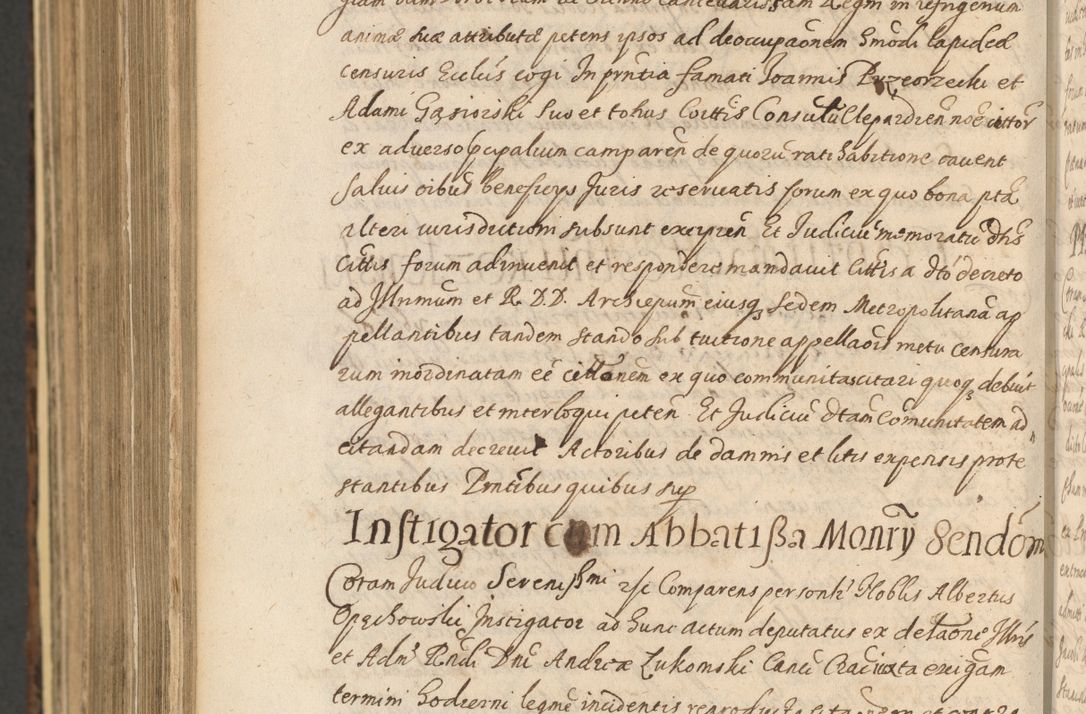 animæ suæ attributæ petens ipsos ad deoccupaõnem hmõdi lapideæ
censuris Ecclûs cogi In prñtia famati Joannis Przeorzecki et
Adami Gąsiorski suo et totius Coittĩs Consulũ Clepardien noẽ cittor̃
ex adverso ṗcipalium comparen̄ de quorũ ratihabitione cavent
salvis oibus beneficys Juris reservatis forum ex quo bona pta
alteri iurisdictioni subsunt excipien̄ Et Judiciũ memoratũ dhs
Cittis forum adinvenit et respondere mandavit Cittis a dto decreto
ad Illrimum et R. D. D. Archiepum eiusq sedem Metropolitanã ap
pellantibus tandem stando sub tuitione appellaõis metu censura
rum inordinatam eẽ cittaõnem ex quo communitas citari quoq debuit
allegantibus et interloqui peten̄ Et Judiciũ dtam Cõmunitatem ad
citandam decrevit Actoribus de damnis et litis expensis prote
stantibus Pñtibus quibus sup̱
Instigator cum Abbatissa Monry Sendõm
Coram Judicio Serenissmi etc Comparens personlr Noblis Albertus
Opęchowski Instigator ad hunc actum deputatus ex delaõne Illris
et Adm Rndi Dni Andreæ Lukomski Canci Crac iuxta exigam
termini hodierni legme incidentis